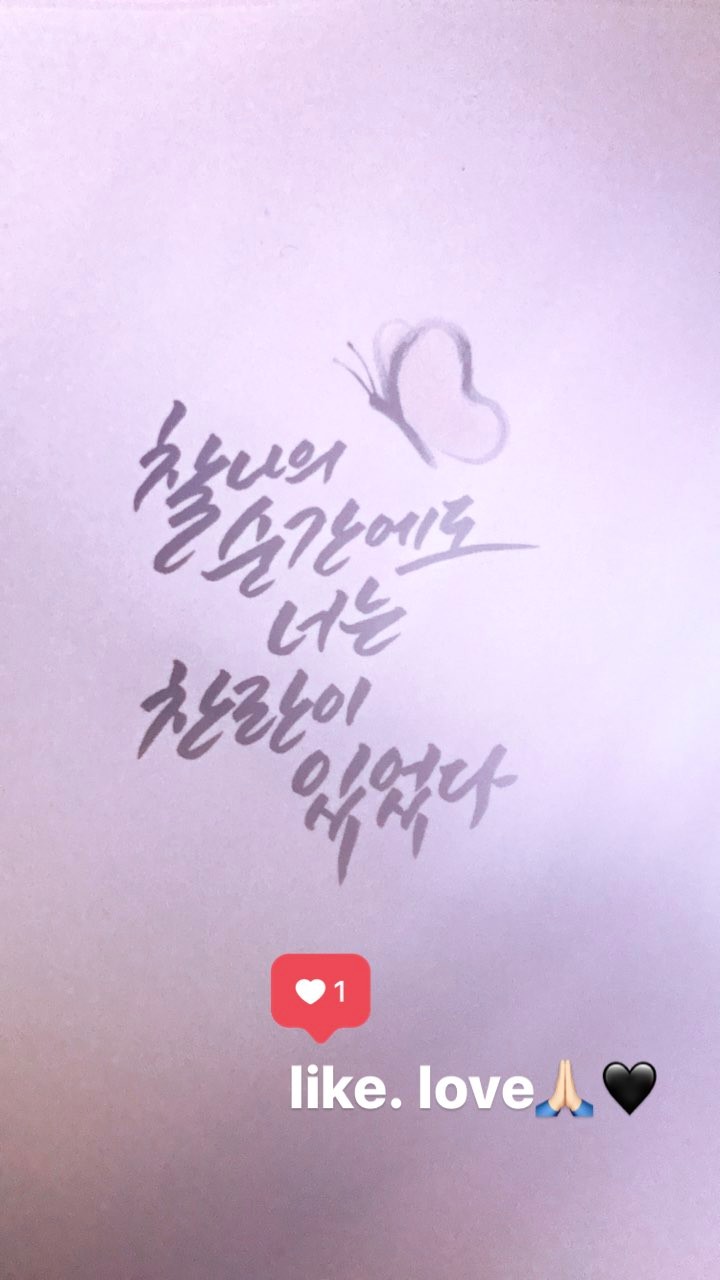 찰나의
순간에도
너는
찬란이
있었다
1
like. love🙏🏻🖤